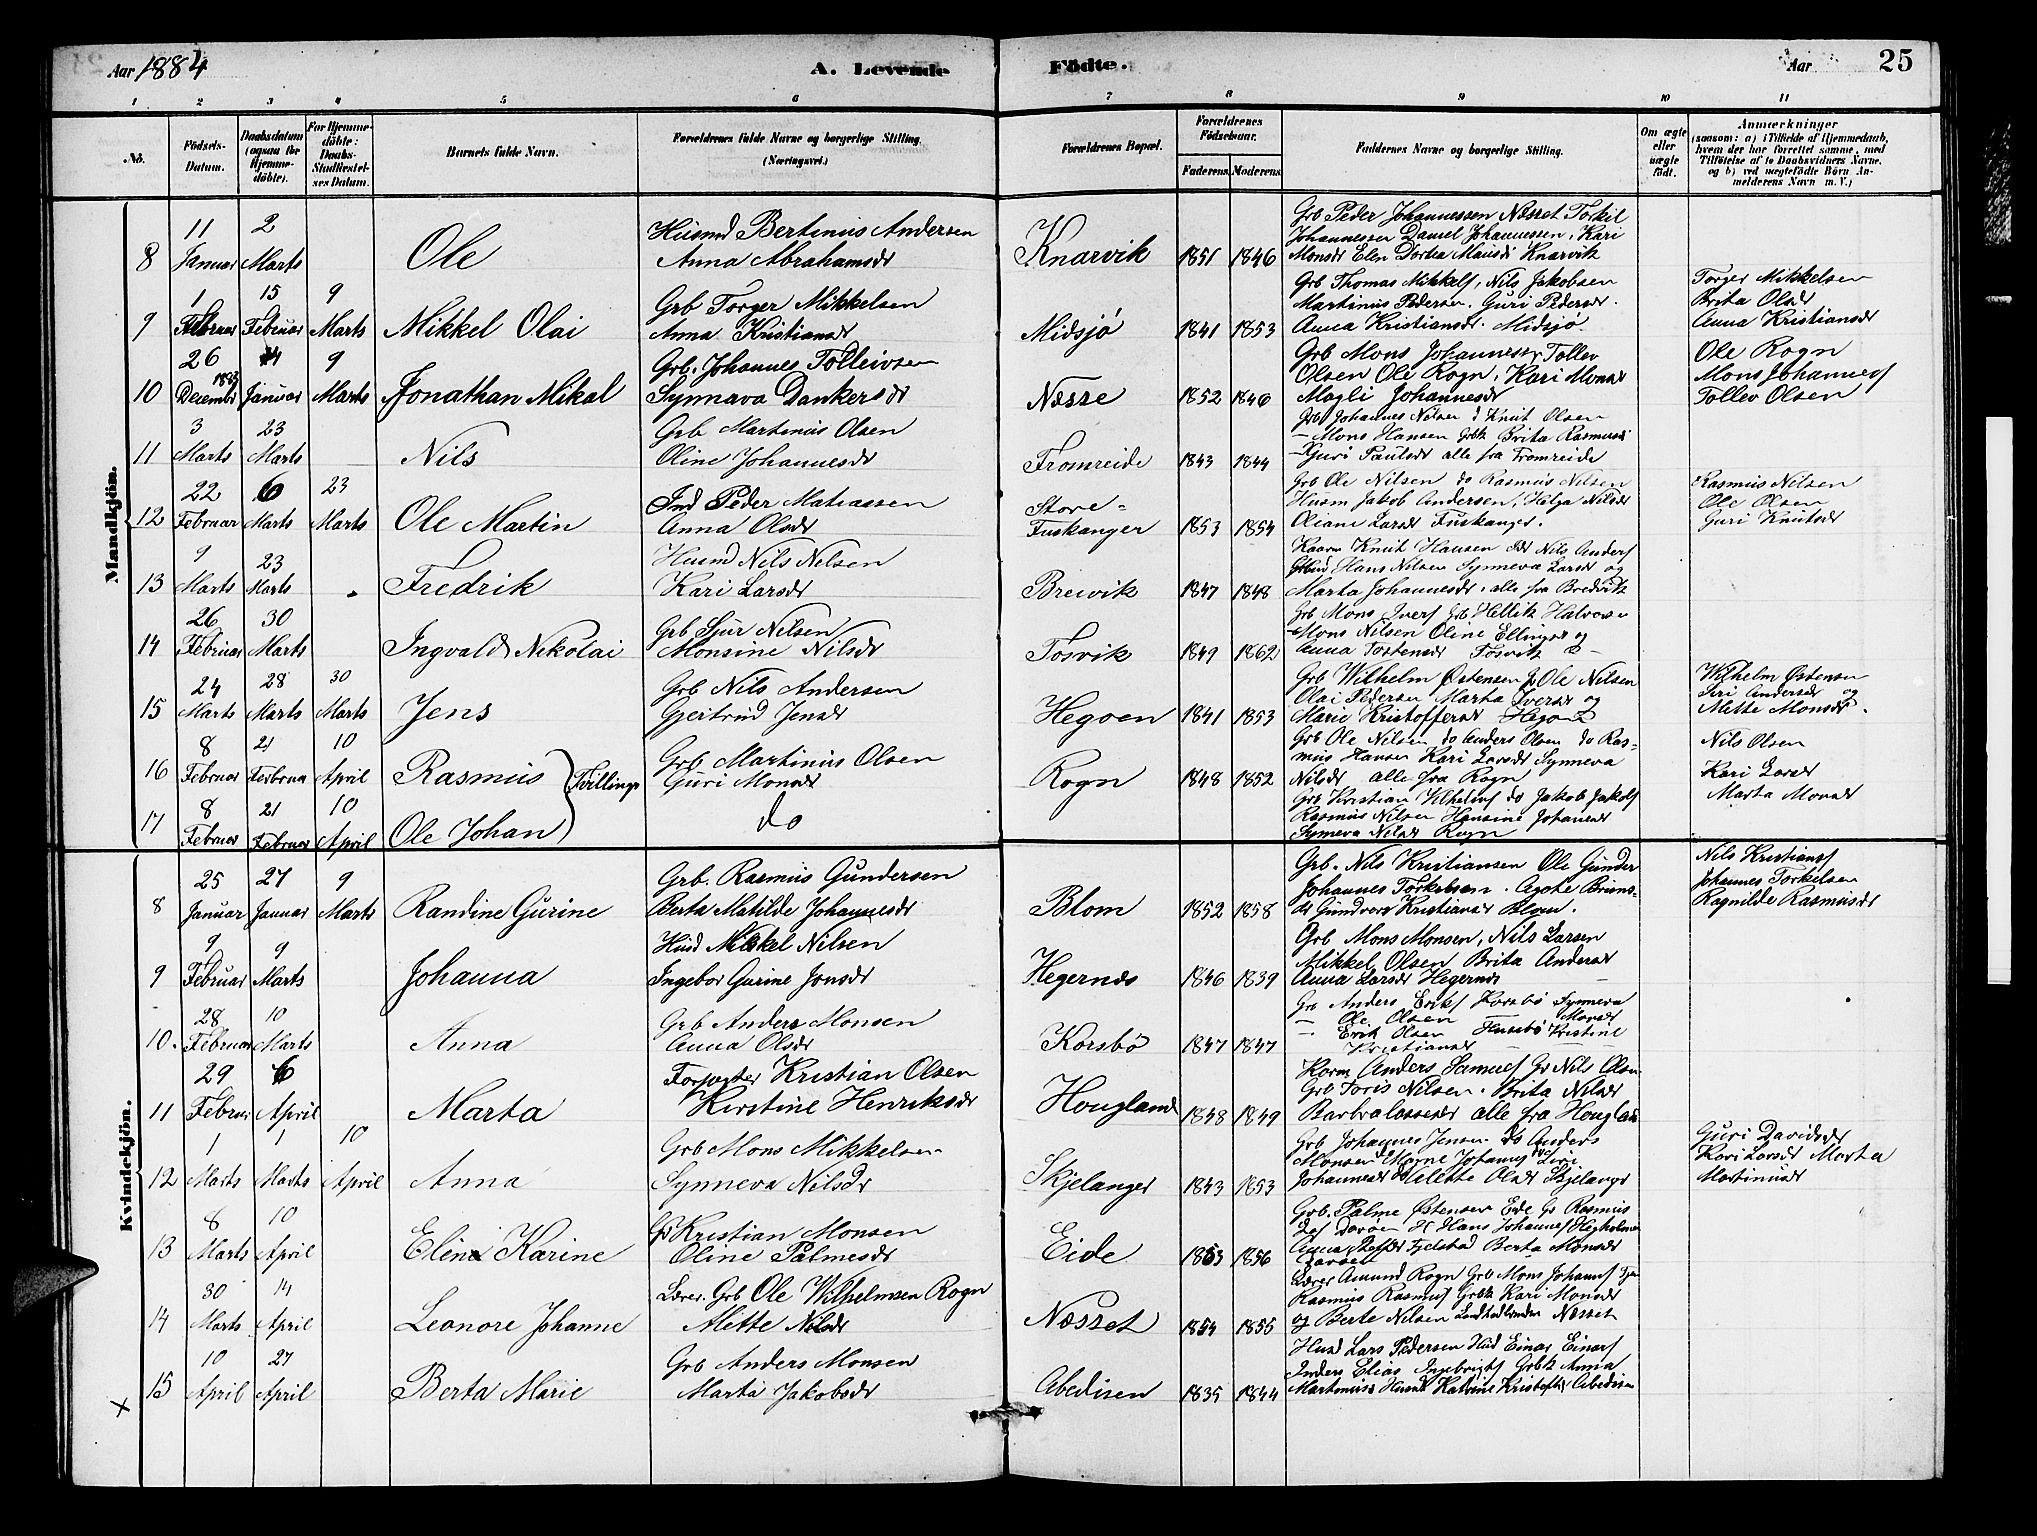 Aar 1884
A. Levende Födte.
Aar
25
1 2 3 4 5 6 7 8 9 10 11
No.
Födsels-Datum.
Daabsdatum (ogsaa for Hjemme-döbte).
For Hjemme-döbte: Daabs-Stadfæstel-ses Datum.
Barnets fulde Navn.
Forældrenes fulde Navne og borgerlige Stilling (Næringsvei.)
Forældrenes Bopæl.
Forældrenes Födselsaar.
Faderens. Moderens.
Faddernes Navne og borgerlige Stilling.
Om ægte eller uægte födt.
Anmærkninger (saasom: a) i Tilfælde af Hjemmedaab, hvem der har forrettet samme, med Tilföielse af to Daabsvidners Navne, og b) ved uægtefödte Börn An-melderens Navn m. V.)
Mandkjön.
11 2 Husmd Bertinus Andersen Grb Peder Johannessen Næsset Torkil
Johannessen Daniel Johannessen, Kari
8 Januar Marts Ole Anna Abrahamsdr Knarvik 1851 1846 Monsdr Elen Dortea Mansdr Knarvik
1 15 9 Grb Torger Mikkelsen Grb Thomas Mikkels, Nils Jakobsen Torger Mikkelsen
Martinus Pedersen. Guri Pedersdr. Brita Olsdr
9 Februar Februar Marts Mikkel Olai Anna Kristiansdr Midsjø 1841 1853 Anna Kristiansdr. Midsjø Anna Kristiansdr
26 9 Grb. Johannes Tolleivsen Grb Mons Johannessen Tollev Ole Rogn
Olsen Ole Rogn, Kari Monsdr Mons Johannes
10 Decembr 1883 Januar Marts Jonathan Mikal Synnava Dankersdr Næsse 1852 1846 Magli Johannesdr Tollev Olsen
3 23 Grb Martinus Olsen Grb Johannes Nilsen do Knut Olsen
- Mons Hansen Grbk Brita Rasmusdr
11 Marts Marts Nils Oline Johannesdr Fromreide 1843 1844 Guri Paulsdr alle fra Fromreide
22 6 23 Ind Peder Matiassen Store- Grb Ole Nilsen do Rasmus Nilsen Rasmus Nilsen
Husm Jakob Andersen, Helga Nilsdr Ole Olsen
12 Februar Marts Marts Ole Martin Anna Olsdr Fuskanger 1853 1854 Oliane Larsdr Fuskanger. Guri Knutsdr
9 23 Husmd Nils Nelsen Kaarm Knut Hansen Nils Anders
Hans Nilsen Synneva Larsdr og
13 Marts Marts Fredrik Kari Larsdr Breivik 1847 1848 Marta Johannesdr, alle fra Bredvik
26 30 Grb Sjur Nilsen Grb Mons Ivers Grb Hellik Halvors
Mons Nilsen Oline Ellingsdr og
14 Februar Marts Ingvald Nikolai Monsine Nilsdr Tosvik 1849 1862 Anna Tostensdr Tosvik
24 28 30 Grb Nils Andersen Grb Wilhelm Østensen Ole Nilsen Wilhelm Østensen
Olai Pedersen Marta Iversdr og Siri Andersdr og
15 Marts Marts Marts Jens Gjertrud Jensdr Hegoen 1841 1853 Marie Kristoffersdr Hegoen Mette Monsdr.
8 21 10 Grb Martinus Olsen Grb Ole Nilsen do Anders Olsen do Ras- Nils Olsen
mus Hansen Kari Larsdr Synneva
16 Februar Februar April Rasmus Tvillinge Guri Monsdr Rogn 1848 1852 Nilsdr alle fra Rogn Kari Larsdr
8 21 10 Grb Kristian Vilhelms do Jakob Jakobs Marta Monsdr
17 Rasmus Nilsen Hansine Johansdr
Februar Februar April Ole Johan do Synneva Nilsdr Rogn
Kvindekjön.
25 27 9 Grb. Rasmus Gundersen Grb. Nils Kristiansen Ole Gunder Nils Kristians
Johannes Torkelsen. Agote Bruns- Johannes Torkelsen
8 Januar Januar Marts Randine Gurine Berta Matilde Johannesdr Blom 1852 1858 dr Gundvor Kristiansdr Blom. Ragnilde Rasmusdr
9 9 Husd Mikkel Nilsen Grb Mons Monsen, Nils Larsen
Mikkel Olsen Brita Andersdr
9 Februar Marts Johanna Ingebor Gurine Jonsdr Hegernæs 1846 1839 Anna Larsdr Hegernæs
28 10 Grb Anders Monsen Grb Anders Eriks Korsbø Synneva
- Ole Olsen Monsdr
10. Februar Marts Anna Anna Olsdr Korsbø 1847 1847 - Erik Olsen Husebø Kristine
Kristiansdr
29 6 Forpagter Kristian Olsen Korm Anders Samuels Gr Nils Olsen
Grb Joris Nilsen. Brita Nilsdr
11 Februar April Marta Kirstine Henriksdr Hougland 1848 1849 Barbra Lassesdr alle fra Hougland
1 1 10 Grb Mons Mikkelsen Grb Johannes Jensen do Anders Guri Davidsdr
Monsen Magne Johannes Siri Kari Larsdr Marta
12 Marts Marts April Anna Synneva Nilsdr Skjelanger 1843 1853 Johannesdr Melette Olsdr Skjelanger Martinusdr
8 10 Gb Kristian Monsen Grb. Palme Østensen Eide Gr Rasmus
Davøen H Hans Johannes Hegholmen
13 Marts April Eline Karine Oline Palmesdr Eide 1853 1856 Anna Fjelstad Berta Monsdr
Davøen
30 14 Lærer. Grb Ole Wilhelmsen Rogn Lærer Amund Rogn Grb Mons Johans
Rasmus Rasmus Grbk Kari Monsdr
14 Marts April Leonore Johanne Mette Nilsdr Næsset 1854 1855 og Berte Nilsen Landhandlerinde Næsset
10 27 Grb Anders Monsen Husd Lars Pedersen Husd Einar Einars
Inders Elias Ingebrigts Grbk Anna
15 April April Berta Marie Marta Jakobsdr Abedisen 1835 1844 Martinus Husmd Katrine Kristoffs Abedisen
x